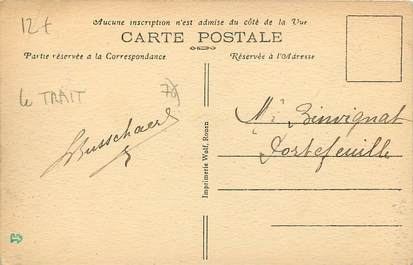 12f
Aucune inscription n'est admise du côté de la Vue
CARTE POSTALE
Partie réservée a la Correspondance
Réservée à l'Adresse
le TRAIT
Busschaert
Imprimerie Wolf, Rouen
Mr Binvignat
Portefeuille